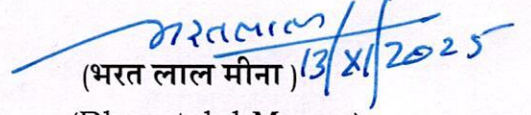 भरतलाल
13/XI/2025
(भरत लाल मीना)